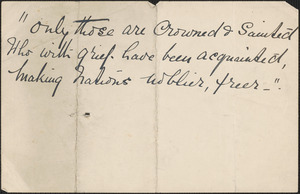 "Only those are Crowned & Sainted
Who with grief have been acquainted,
making Nations nobler, freer –".